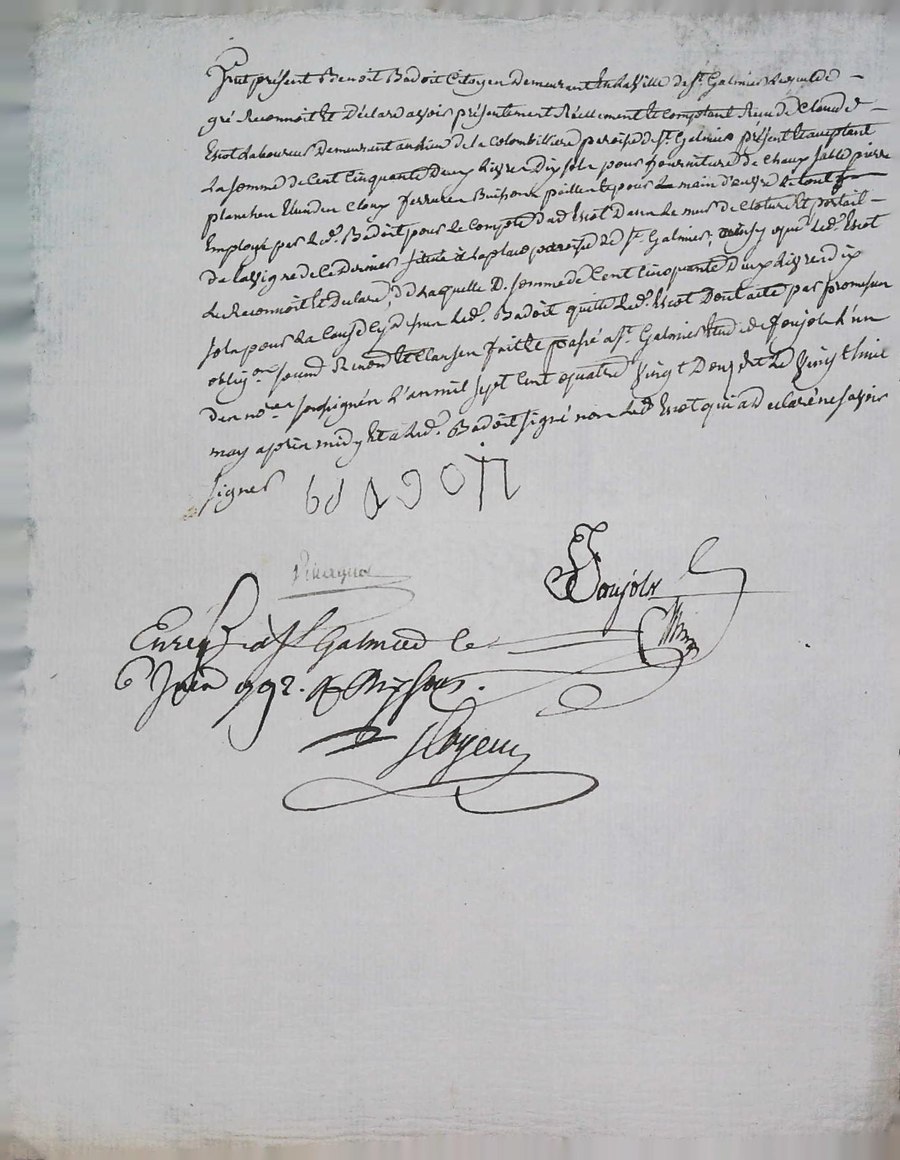 Fut présent Benoit Badoit Citoyen demeurant en la ville de st. Galmier lequel de
gré Reconnoit et déclare avoir présentement Réellement et comptant Reçu de Claude
Exot Laboureur demeurant au lieu de la Colombillière paroisse de st. Galmier présent et acceptant
La somme de Cent cinquante deux Livres dix sols pour fourniture de chaux sable pierre
planches Cloux ferrure Buissons et pour La main d'euvre le tout
Employé par led. Badoit pour le compte dud Exot dans le mur de Cloture et portail
de la vigne de ce dernier située à paroisse de st. Galmier, ainsy que led. Exot
Le Reconnoit et déclare, de laquelle d. somme de Cent cinquante deux Livres dix
sols pour la led. Badoit quitte led. Exot dont acte par promesses
oblig.on soumd. Renon. et Clauses fait et passé a st. Galmier étude de Joujols L'un
des no.res soussignés L'an mil sept Cent quatre vingt Douze et le vingt huit
may après midy et a led. Badoit signé non led. Exot qui a déclaré ne savoir
signer
badoit
Joujols
Enreg. à St Galmier le
6 Juin 1792. R dix sous.